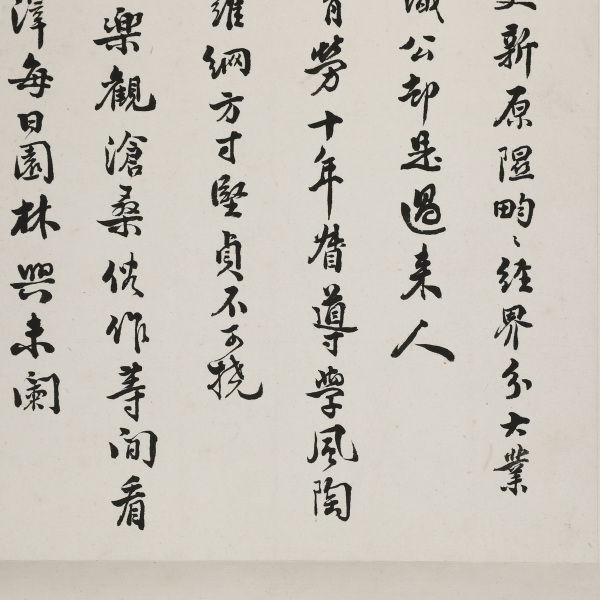 新原隰畇〻經界分大業
公却是過来人
勞十年督導學風陶
維綱方寸堅貞不可撓
樂觀滄桑倏作等閒看
每日園林興未闌